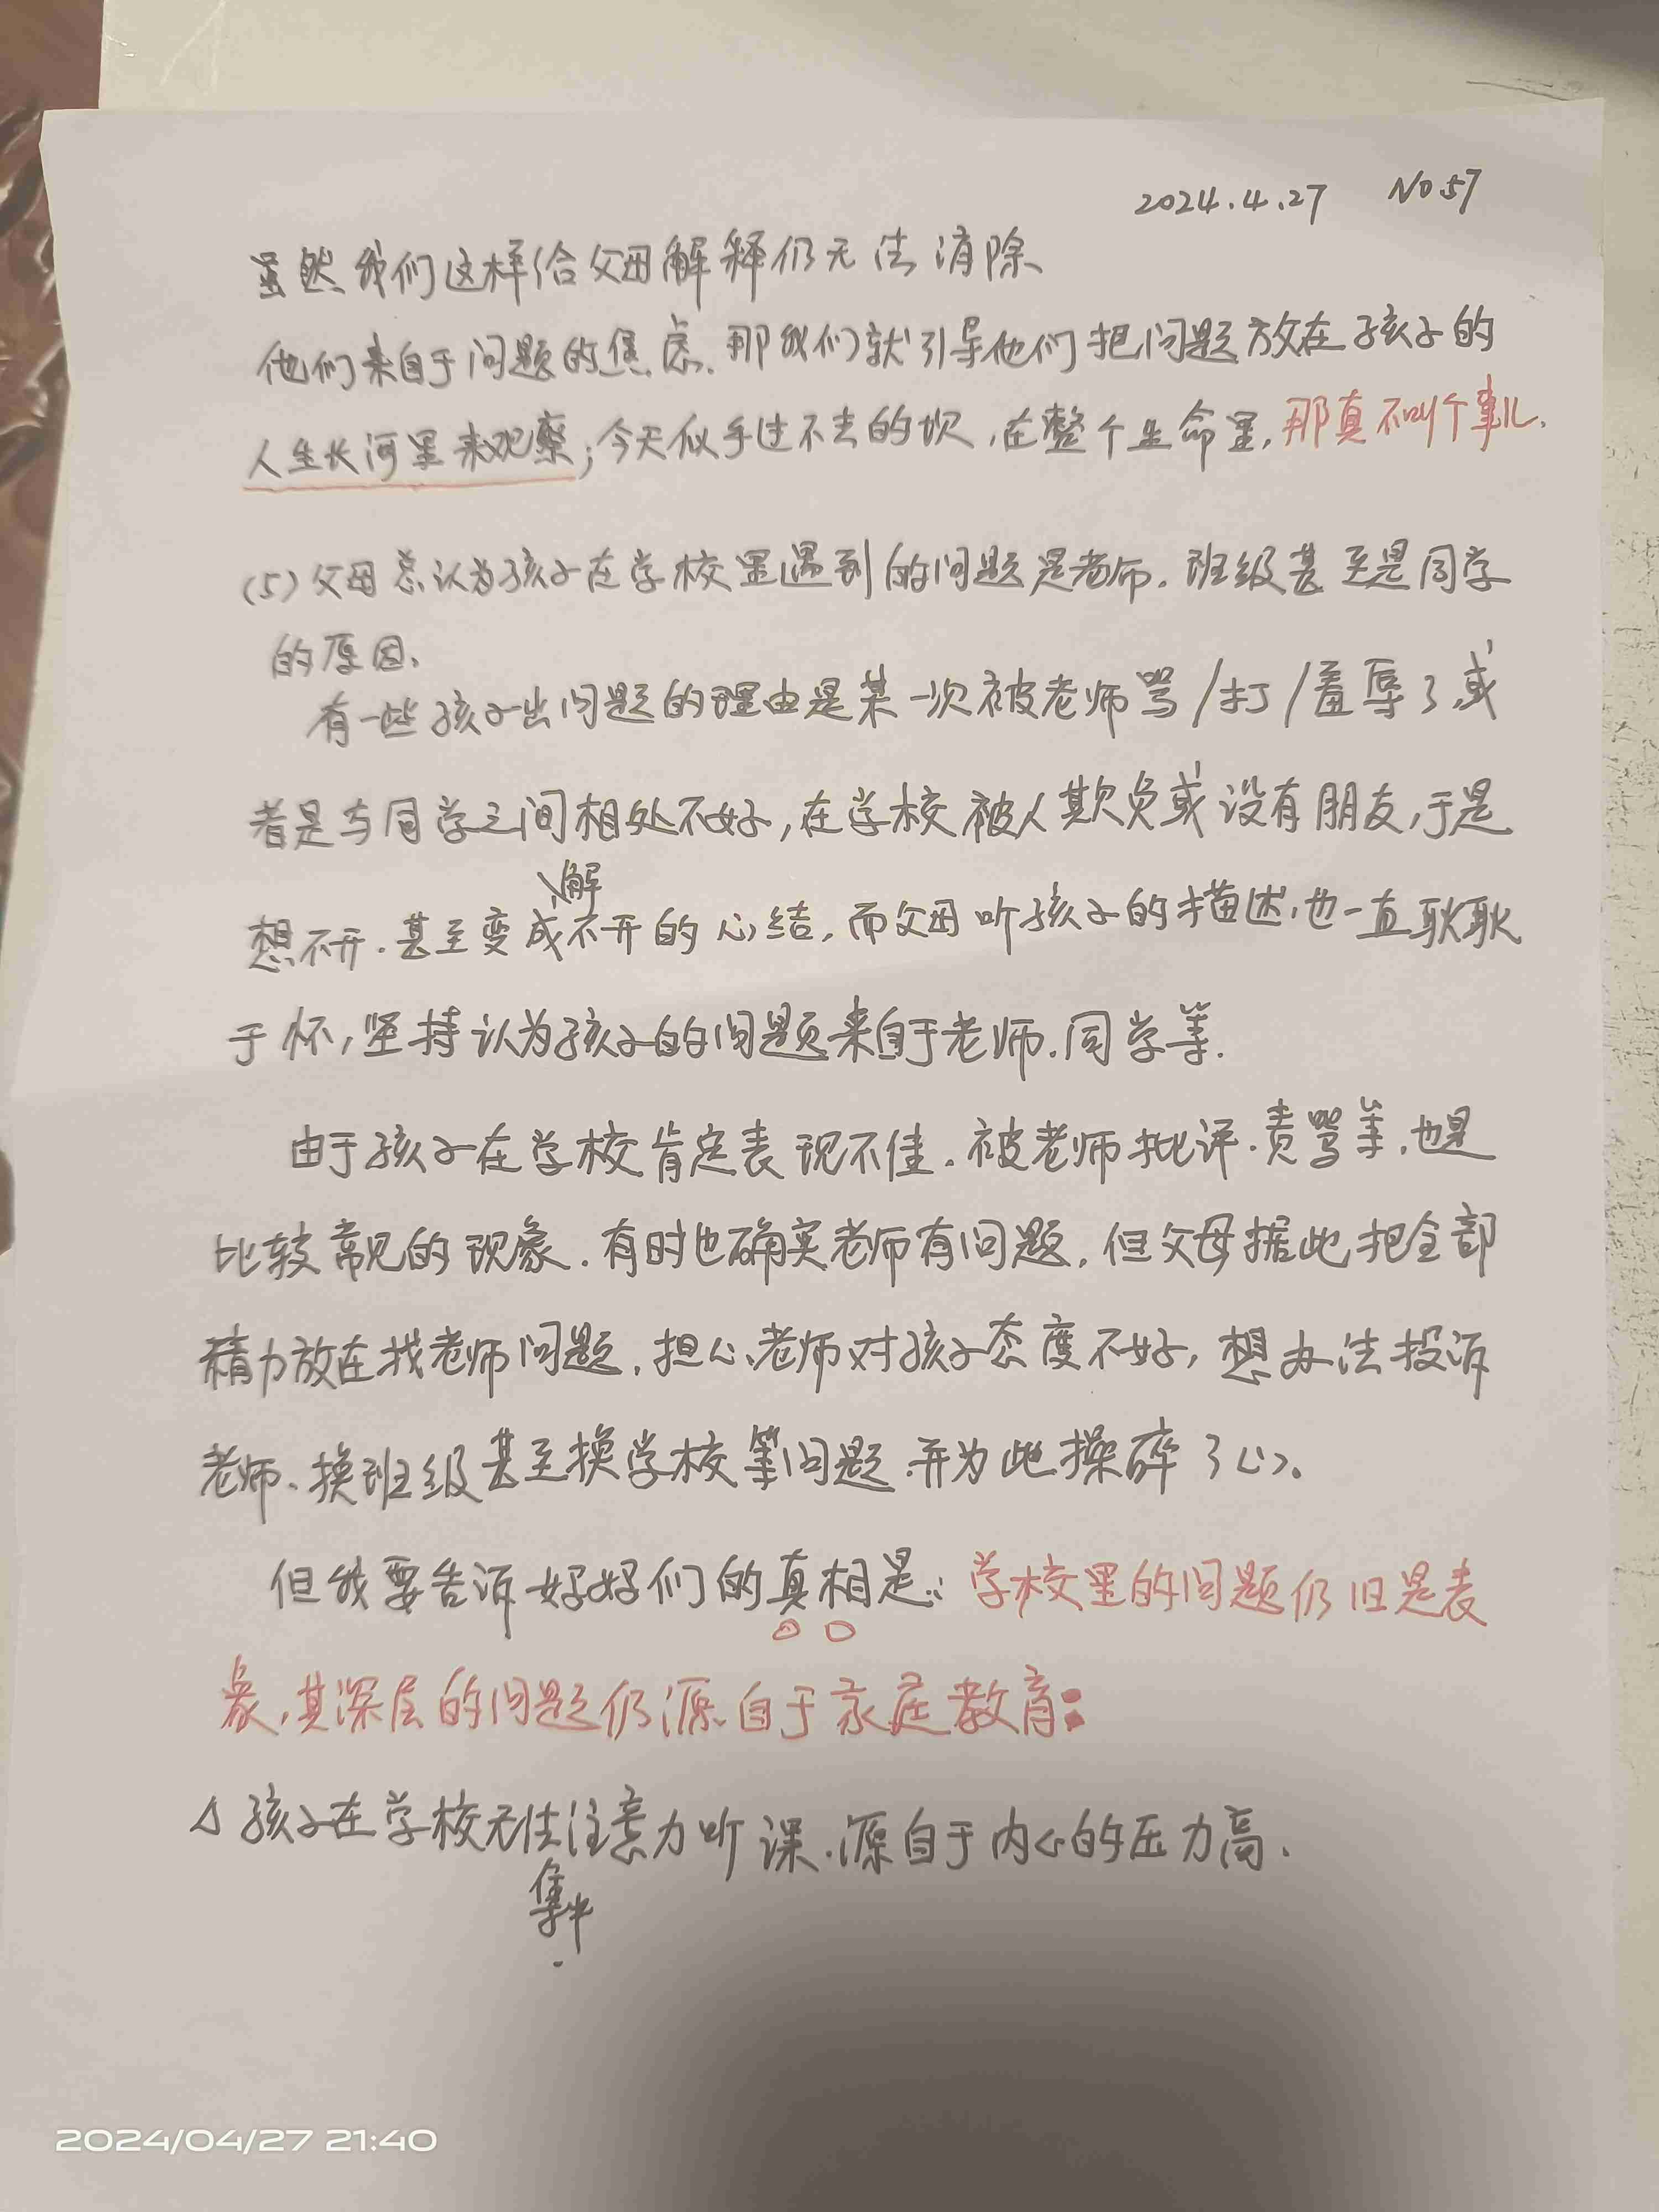 2024.4.27 NO.57
虽然我们这样给父母解释仍无法消除
他们来自于问题的焦虑、那我们就引导他们把问题放在孩子的
人生长河里来观察;今天似乎过不去的坎,在整个生命里,那真不叫个事儿.
(5)父母总认为孩子在学校里遇到的问题是老师.班级甚至是同学
的原因、
有一些孩子出问题的理由是某一次被老师骂/打/羞辱了,或
者是与同学之间相处不好,在学校被人欺负或没有朋友,于是
解
想不开.甚至变成不开的心结,而父母听孩子的描述,也一直耿耿
于怀,坚持认为孩子的问题来自于老师.同学等.
由于孩子在学校肯定表现不佳.被老师批评.责骂等.也是
比较常见的现象.有时也确实老师有问题,但父母据此把全部
精力放在找老师问题,担心老师对孩子态度不好,想办法投诉
老师、换班级甚至换学校等问题.并为此操碎了心。
但我要告诉好好们的真相是:学校里的问题仍旧是表
象,其深层的问题仍源自于家庭教育:
△孩子在学校无法注意力听课.源自于内心的压力高.
集中
2024/04/27 21:40